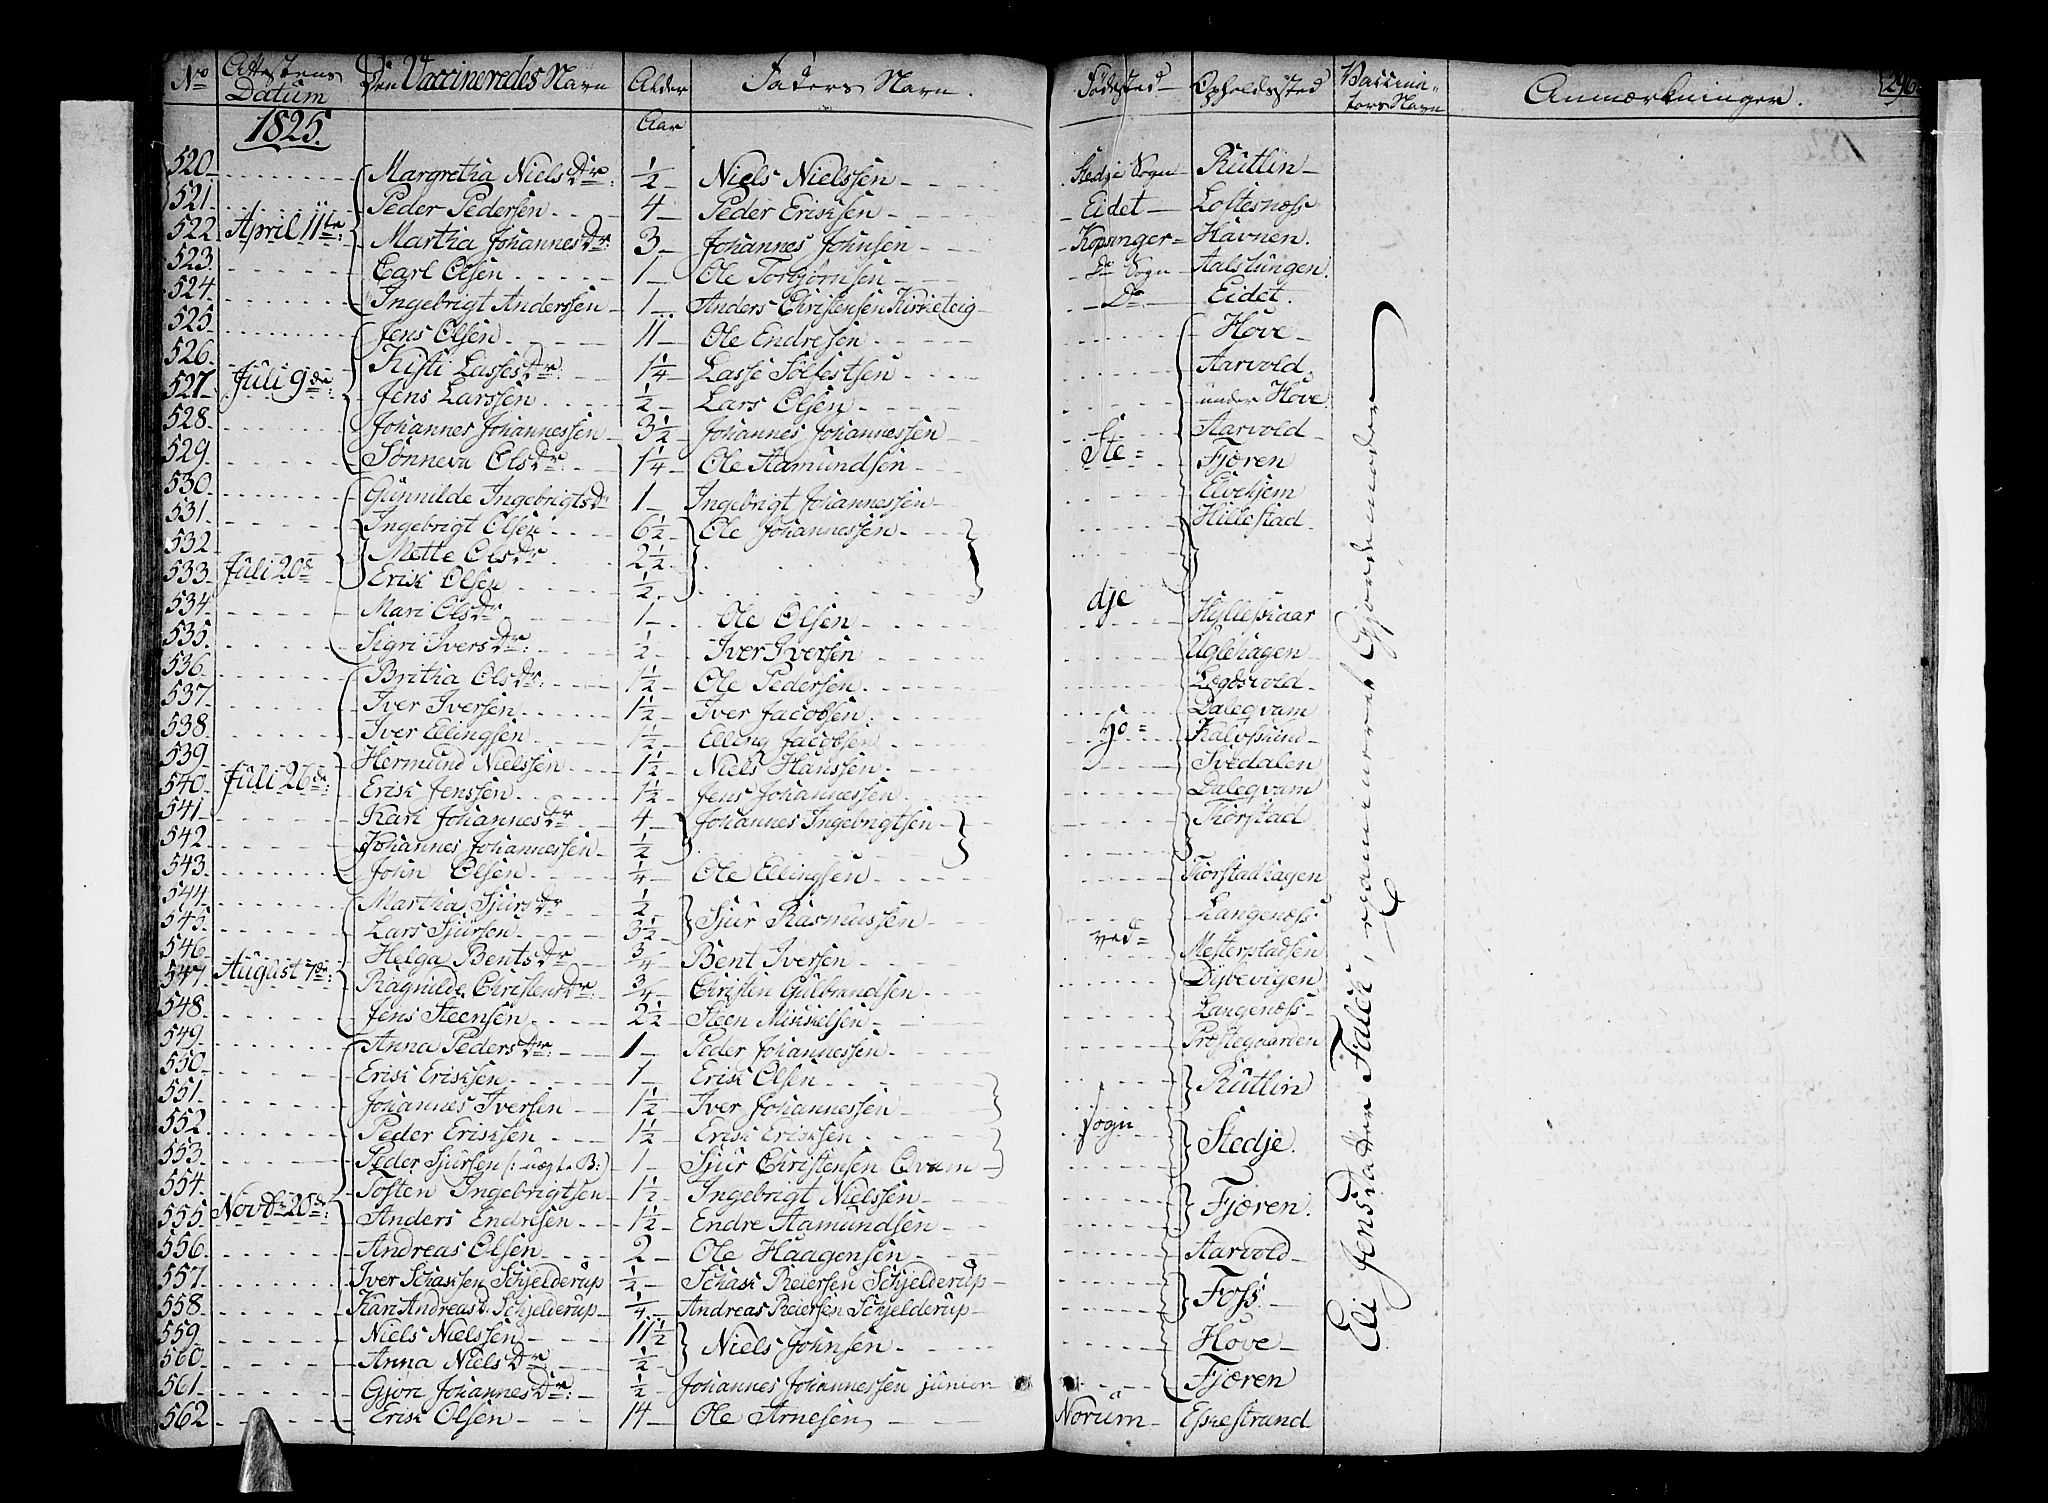 No Attestens Datum Den Vaccineredes Navn Alder Faders Navn. Fødested Opholdssted Vaccinators Navn Anmærkninger. 296
1825. Aar
520 Margretha NielsDr: 1/2 Niels Nielssen Stedje Sogn Rutlin
521 Peder Pedersen 4 Peder Eriksen Eidet Loftesnæss
522 April 11te: Martha JohannesDr: 3 Johannes Johnsen Kopanger Havnen.
523 Carl Olsen 1 Ole Torbjørnsen Do Sogn
524 Ingebrigt Anderssen 1 Anders Christensen Kirketeig Do Eidet.
525 Jens Olsen 11 Ole Endresen Hove
526 Kisti LassesDr: 1 1/4 Lasse Sølfestsen Aarvold
527 Juli 9de: Jens Larssen 1/2 Lars Olsen under Hove
528 Johannes Johannessen 3 1/2 Johannes Johannessen Aarvold
529 Sønneva OlsDr: 1 1/4 Ole Aamundsen Ste= Fjæren
530 Gunnilde IngebrigtsDr 1 Ingebrigt Johannessen Elvekjem
531 Ingebrigt Olsen 6 1/2 Ole Johannessen Hillestad
532 Mette OlsDr 2 1/2
533 Juli 20de Erik Olsen 1/2
534 Mari OlsDr 1 Ole Olsen dje Hylleskaar
535 Sigri IversDr: 1/2 Iver Iversen Uglehagen
536 Britha OlsDr: 1 1/2 Ole Pedersen
537 Iver Iversen 1 1/2 Iver Jacobsen Daleqvam
538 Iver Ellingsen 1 1/2 Elling Jacobsen Ho= Kalvskind
539 Hermund Nielssen 1 1/2 Niels Hanssen Svedalen
540 Juli 26de: Erik Jenssen 1 1/2 Jens Johannessen Daleqvam
541 Kari JohannesDr 4 Johannes Ingebrigtsen Tiørstad
542 Johannes Johannessen 1/2
543 John Olsen 1/4 Ole Ellingsen Tiørstadhagen
544 Martha SjursDr 1/2 Sjur Rasmussen Langenæss
545 Lars Sjursen 3 1/2
546 Helga BentsDr 3/4 Bent Iversen ved= Mesterpladsen
547 August 7de: Ragnilde ChristensDr: 3/4 Christen Gulbrandsen Dybevigen
548 Jens Steensen 2 1/2 Steen Mikkelsen Langenæss
549 Anna PedersDr: 1 Peder Johannessen Præstegaarden
550 Erik Eriksen 1 Erik Olsen Rutlin
551 Johannes Iversen 1 1/2 Iver Johannessen
552 Peder Eriksen 1 1/2 Erik Eriksen Sogn Stedje.
553 Peder Sjursen (: uægte B:) 1 Sjur Christensen Qvam
554 Tosten Ingebrigtsen 1 1/2 Ingebrigt Nielssen Fjæren.
555 Novbr 20de: Anders Endresen 1 1/2 Endre Aamundsen
556 Andreas Olsen 2 Ole Haagensen Aarvold
557 Iver Schaksen Schjelderup 1/2 Schak Reiersen Schjelderup Foss
558 Kari Andreasd. Schjelderup 1/4 Andreas Reiersen Schjelderup
559 Niels Nielssen 11 1/2 Niels Johnsen Hove
560 Anna NielsDr 1/2
561 Gjøri JohannesDr: 1/2 Johannes Johannessen junior Fjæren
562 Erik Olsen 14 Ole Arnesen Norum Eskestrand
Eli Jensdatter Falck, examineret Gjordemoder